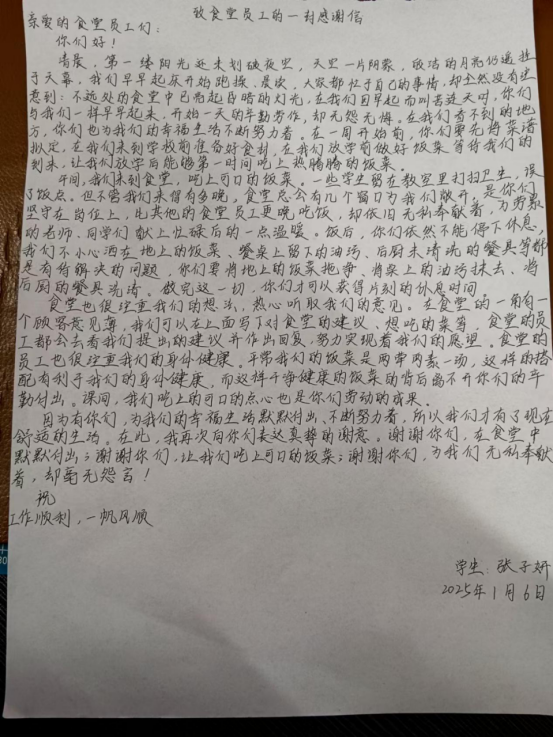 致食堂员工的一封感谢信
亲爱的食堂员工们:
你们好!
清晨,第一缕阳光还未划破夜空,天里一片阴蒙,皎洁的月亮仍遥挂
于天幕,我们早早起床开始跑操、晨读,大家都忙于自己的事情,却全然没有注
意到:不远处的食堂中已亮起昏暗的灯光,在我们因早起而叫苦连天时,你们
与我们一样早早起来,开始一天的辛勤劳作,却无怨无悔。在我们看不到的地
方,你们也为我们的幸福生活不断努力着。在一周开始前,你们要先将菜谱
拟定,在我们来到学校前准备好食材,在我们放学前做好饭菜等待我们的
到来,让我们放学后能够第一时间吃上热腾腾的饭菜。
午间,我们来到食堂,吃上可口的饭菜。一些学生留在教室里打扫卫生,误
了饭点。但不管我们来得有多晚,食堂总会有几个窗口为我们敞开,是你们
坚守在岗位上,比其他的食堂员工更晚吃饭,却依旧无私奉献着,为劳累
的老师、同学们献上忙碌后的一点温暖。饭后,你们依然不能停下休息,
我们不小心洒在地上的饭菜、餐桌上留下的油污、后厨未清洗的餐具等都
是有待解决的问题,你们要将地上的饭菜拖净、将桌上的油污抹去、将
后厨的餐具洗清。做完这一切,你们才可以获得片刻的休息时间。
食堂也很注重我们的想法,热心听取我们的意见。在食堂的一角有一
个顾客意见簿,我们可以在上面写下对食堂的建议、想吃的菜等。食堂的员
工都会去看我们提出的建议并作出回复,努力实现着我们的愿望。食堂的
员工也很注重我们的身体健康。平常我们的饭菜是两荤两素一汤,这样的搭
配有利于我们的身体健康,而这样干净健康的饭菜的背后离不开你们的辛
勤付出。课间,我们吃上的可口的点心也是你们劳动的成果。
因为有你们,为我们的幸福生活默默付出、不断努力着,所以我们才有了现在
舒适的生活。在此,我再次向你们表达真挚的谢意。谢谢你们,在食堂中
默默付出;谢谢你们,让我们吃上可口的饭菜;谢谢你们,为我们无私奉献
着,却毫无怨言!
祝
工作顺利,一帆风顺
学生:张子妍
2025年1月6日